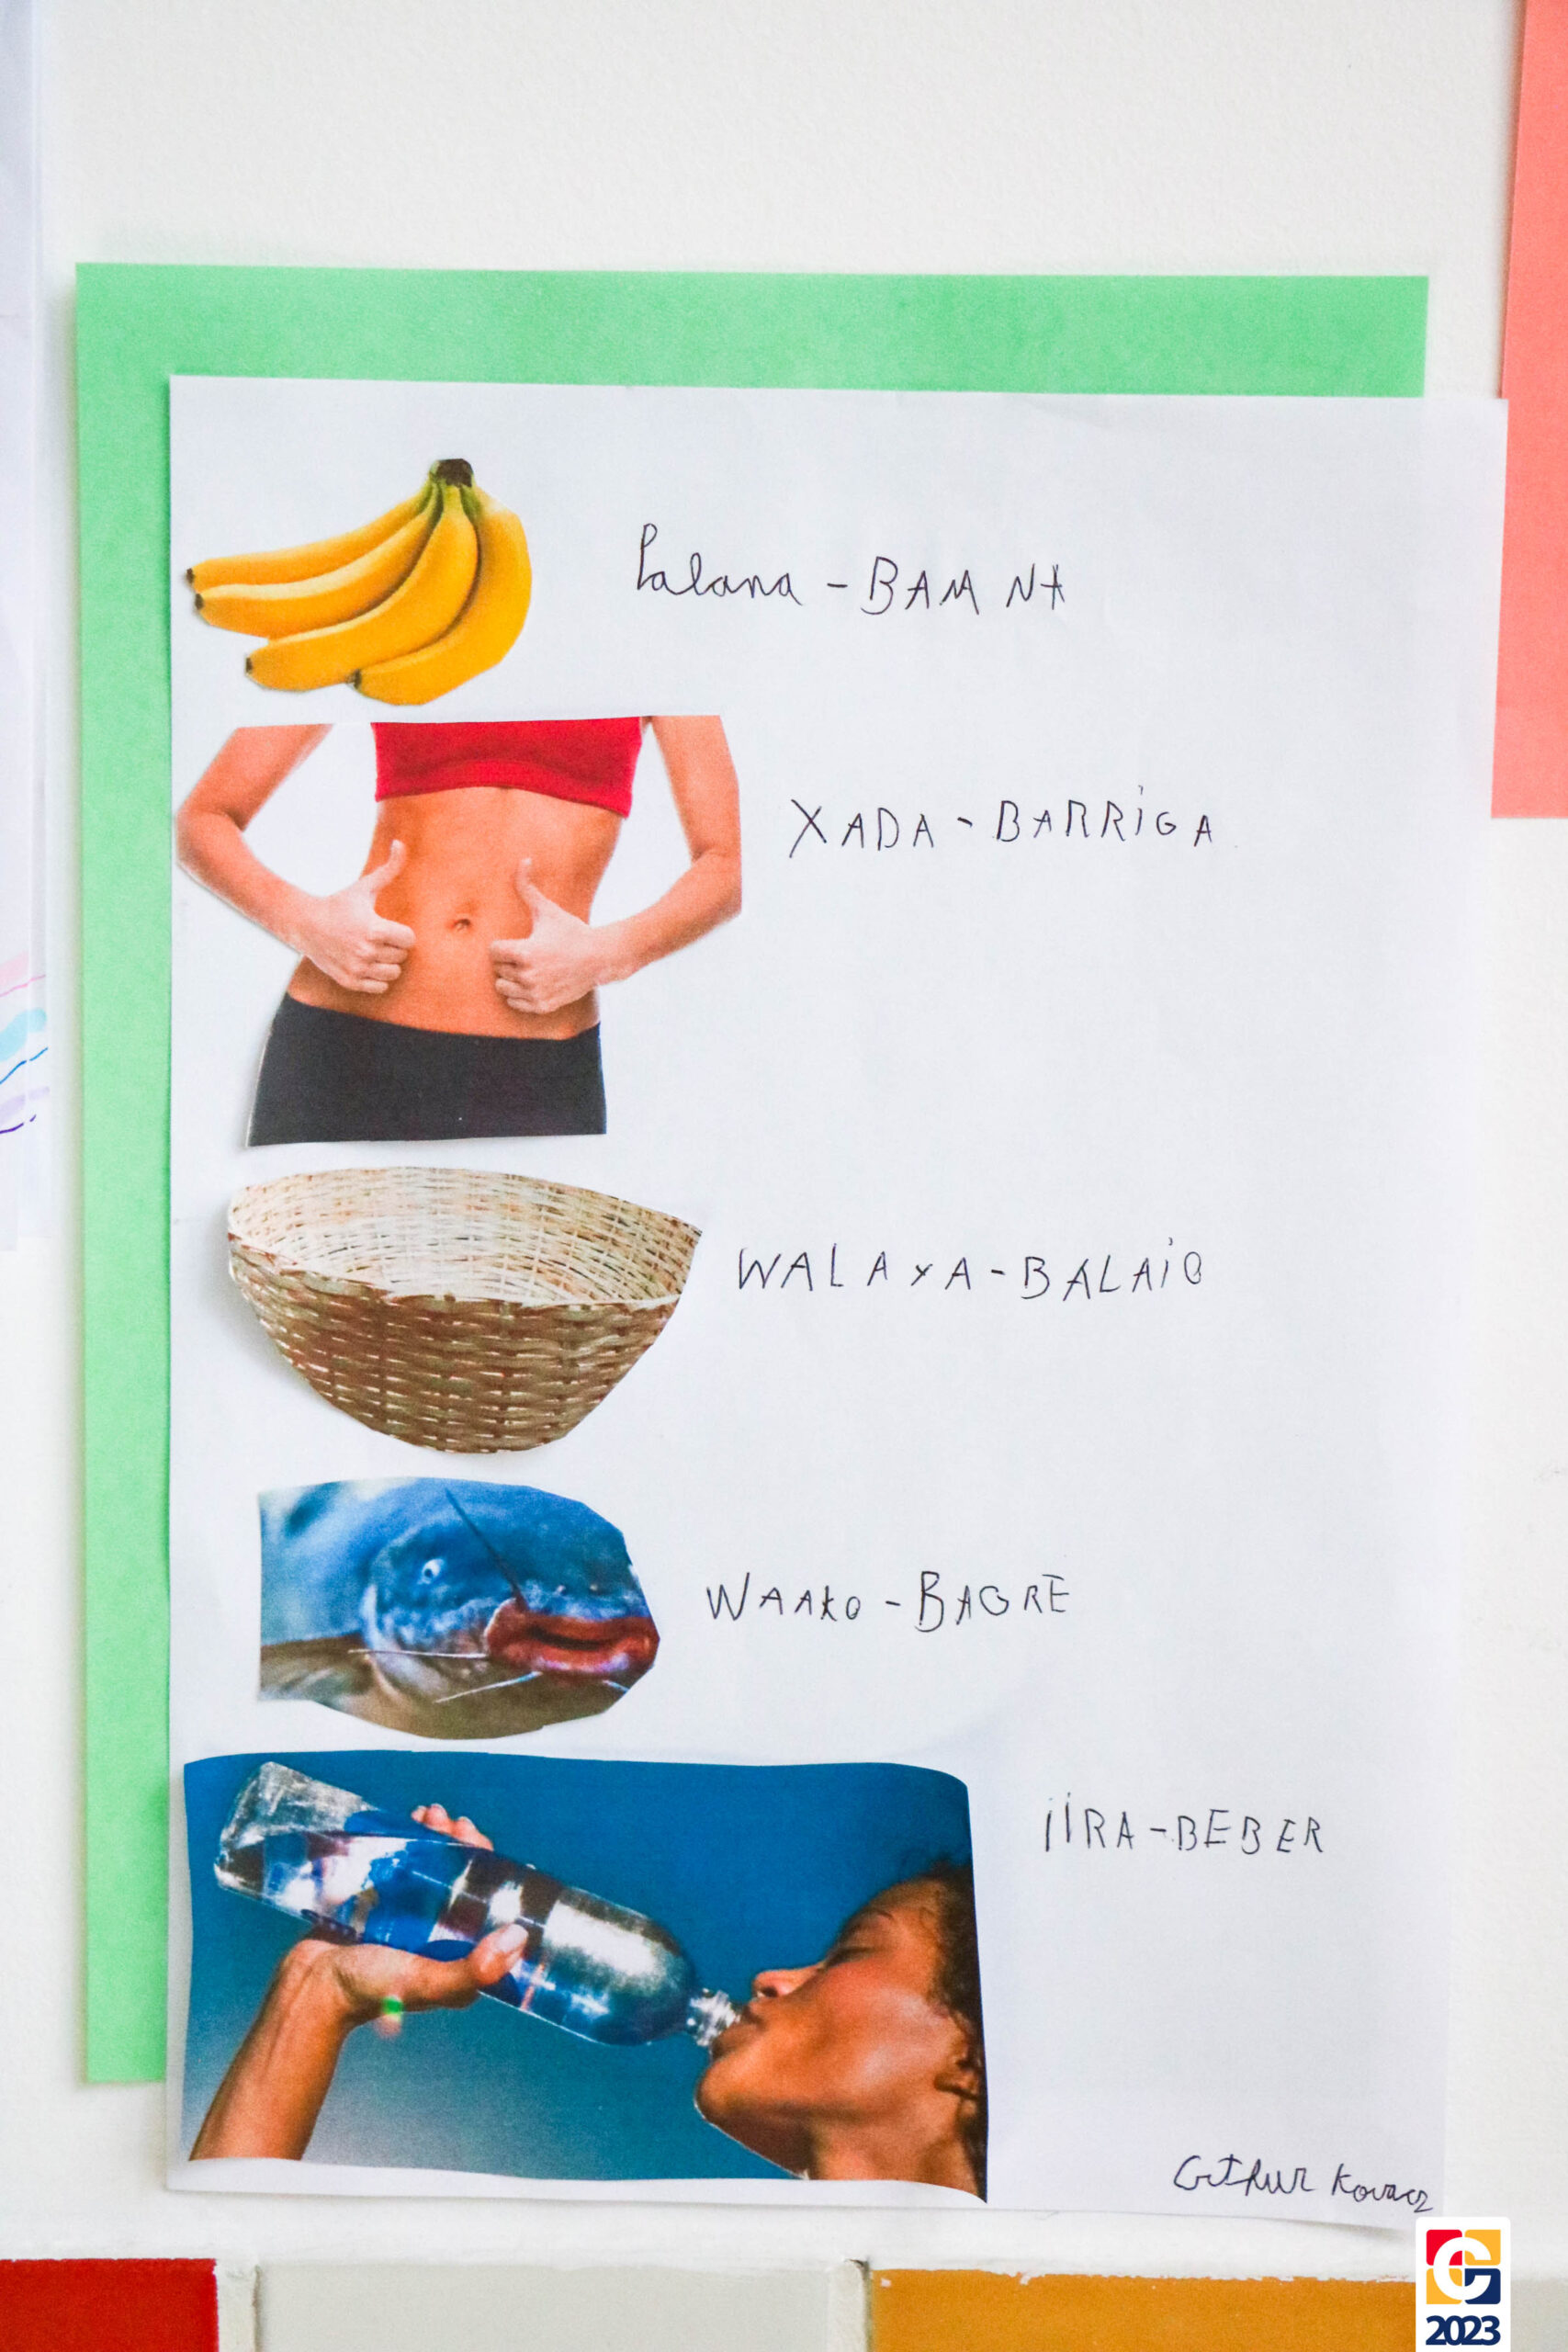 Palana - BAMNA
XADA - BARRIGA
WALAYA - BALAIO
WAAKO - BAGRE
IIRA - BEBER
Arthur Kovacz
2023